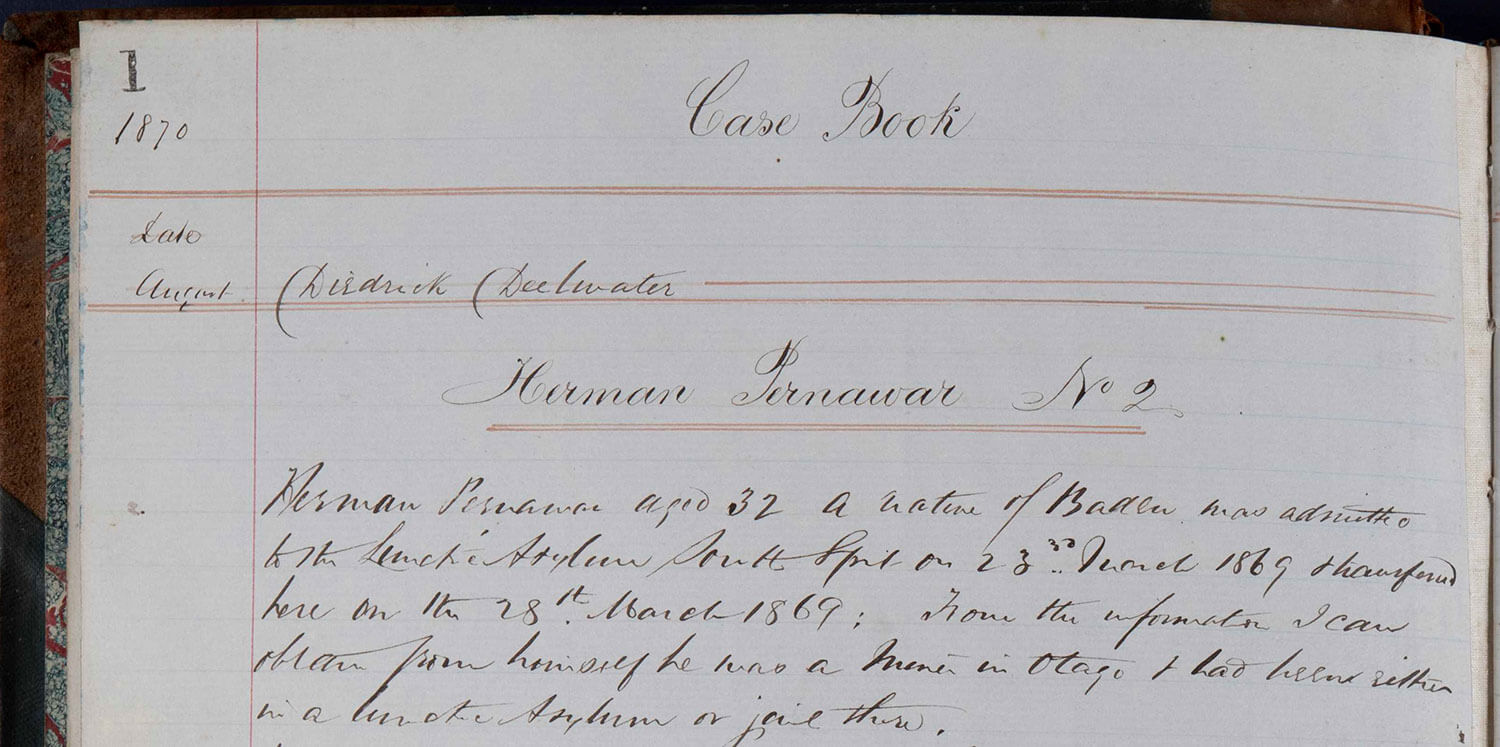 1
1870
Case Book
Date
August Diedrick Deelwater
Herman Pernawar No 2
Herman Pernawar aged 32 a native of Baden was admitted
to the Lunatic Asylum South Spit on 23rd March 1869 & transferred
here on the 28th March 1869; From the information I can
obtain from himself he was a Miner in Otago & had been either
in a lunatic Asylum or jail there.